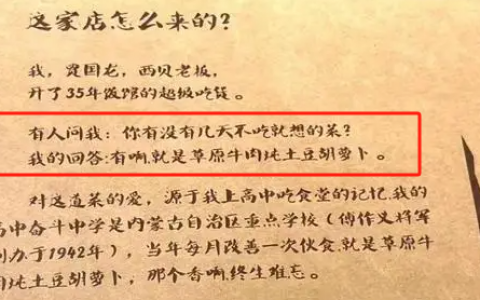 这家店怎么来的？
我，贾国龙，西贝老板，
开了35年饭馆的超级吃货。
有人问我：你有没有几天不吃就想的菜？
我的回答:有啊,就是草原牛肉炖土豆胡萝卜。
对这道菜的爱，源于我上高中吃食堂的记忆.我的
高中奋斗中学是内蒙古自治区重点学校（傅作义将军
创办于1942年），当年每月改善一次伙食,就是草原牛
肉炖土豆胡萝卜，那个香啊,终生难忘。